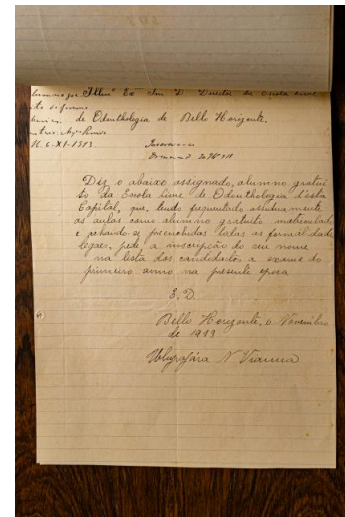 Illmo Exmo Snr D. Director da Escola Livre
de Odonthologia de Bello Horizonte.
6-XI-1913
Diz o abaixo assignado, alumno gratui
to da Escola Livre de Odonthologia d'esta
Capital, que, tendo frequentado assiduamente
as aulas como alumno gratuito matriculado
e achando-se preenchidas todas as formalidade
legaes, pede a inscripção do seu nome
na lista dos candidatos a exame do
primeiro anno na presente epoca
E. D.
Bello Horizonte, 6 Novembro
de 1913
N Vianna